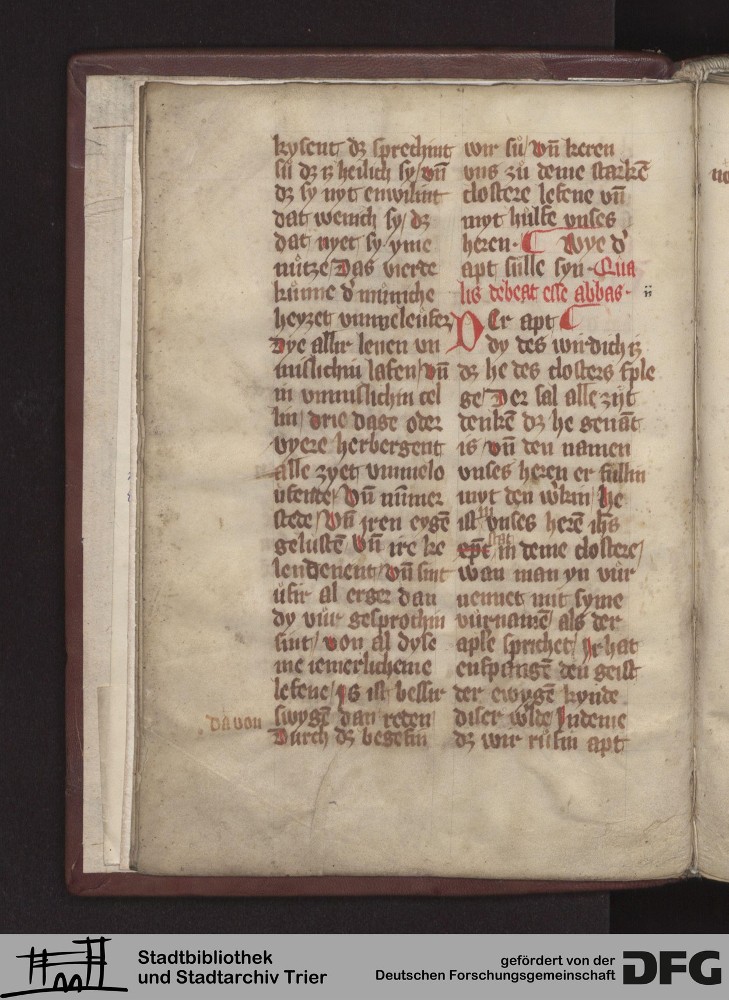 kysent dz sprechint
sü dz is heilich sy/ vn̄
dz sy nyt enwilint
dat wenich sy/ dz
dat nyet sy yme
nütze Das vierde
künne d' müniche
heyzet vmmeleufer
Dye allir leuen vn
mislichin lasen/ vn̄
in vnmislichin cel
lin/ drie dage oder
vyere herbergent
alle zyet vmmelo
ufende/ Vn̄ nūmer
stede/ Vn̄ jren eygē
gelustē Vn̄ ire ke
lendenent/ Vn̄ sint
ufir al erger dan
dy vůr gesprochin
sint/ von al dyse
me iemerlicheme
lesene/ is ist bessir
swygē dan reden
Durch dz begefin
da von
wir sů/ vn̄ keren
vns zů deme starkē
clostere lesene vn̄
myt hülfe vnses
heren· Wye d'
apt sülle syn· Qua
lis debeat esse abbas· ii
Der apt
dy des wirdich is
dz he des closters fple
ge/ Der sal alle zijt
denkē dz he genāt
is/ vn̄ den namen
vnses heren er fullin
myt den w'kin/ he
ist vnses herē ih̄s
stat
ep̄c in deme clostere/
wan man yn vůr
nennet mit syme
vůrnamē/ als der
aple sprichet/ Ir hat
enfpangē den geist
der ewygē kynde
diser w'lde/ Indeme
dz wir růfin apt
Stadtbibliothek
und Stadtarchiv Trier
gefördert von der
Deutschen Forschungsgemeinschaft
DFG